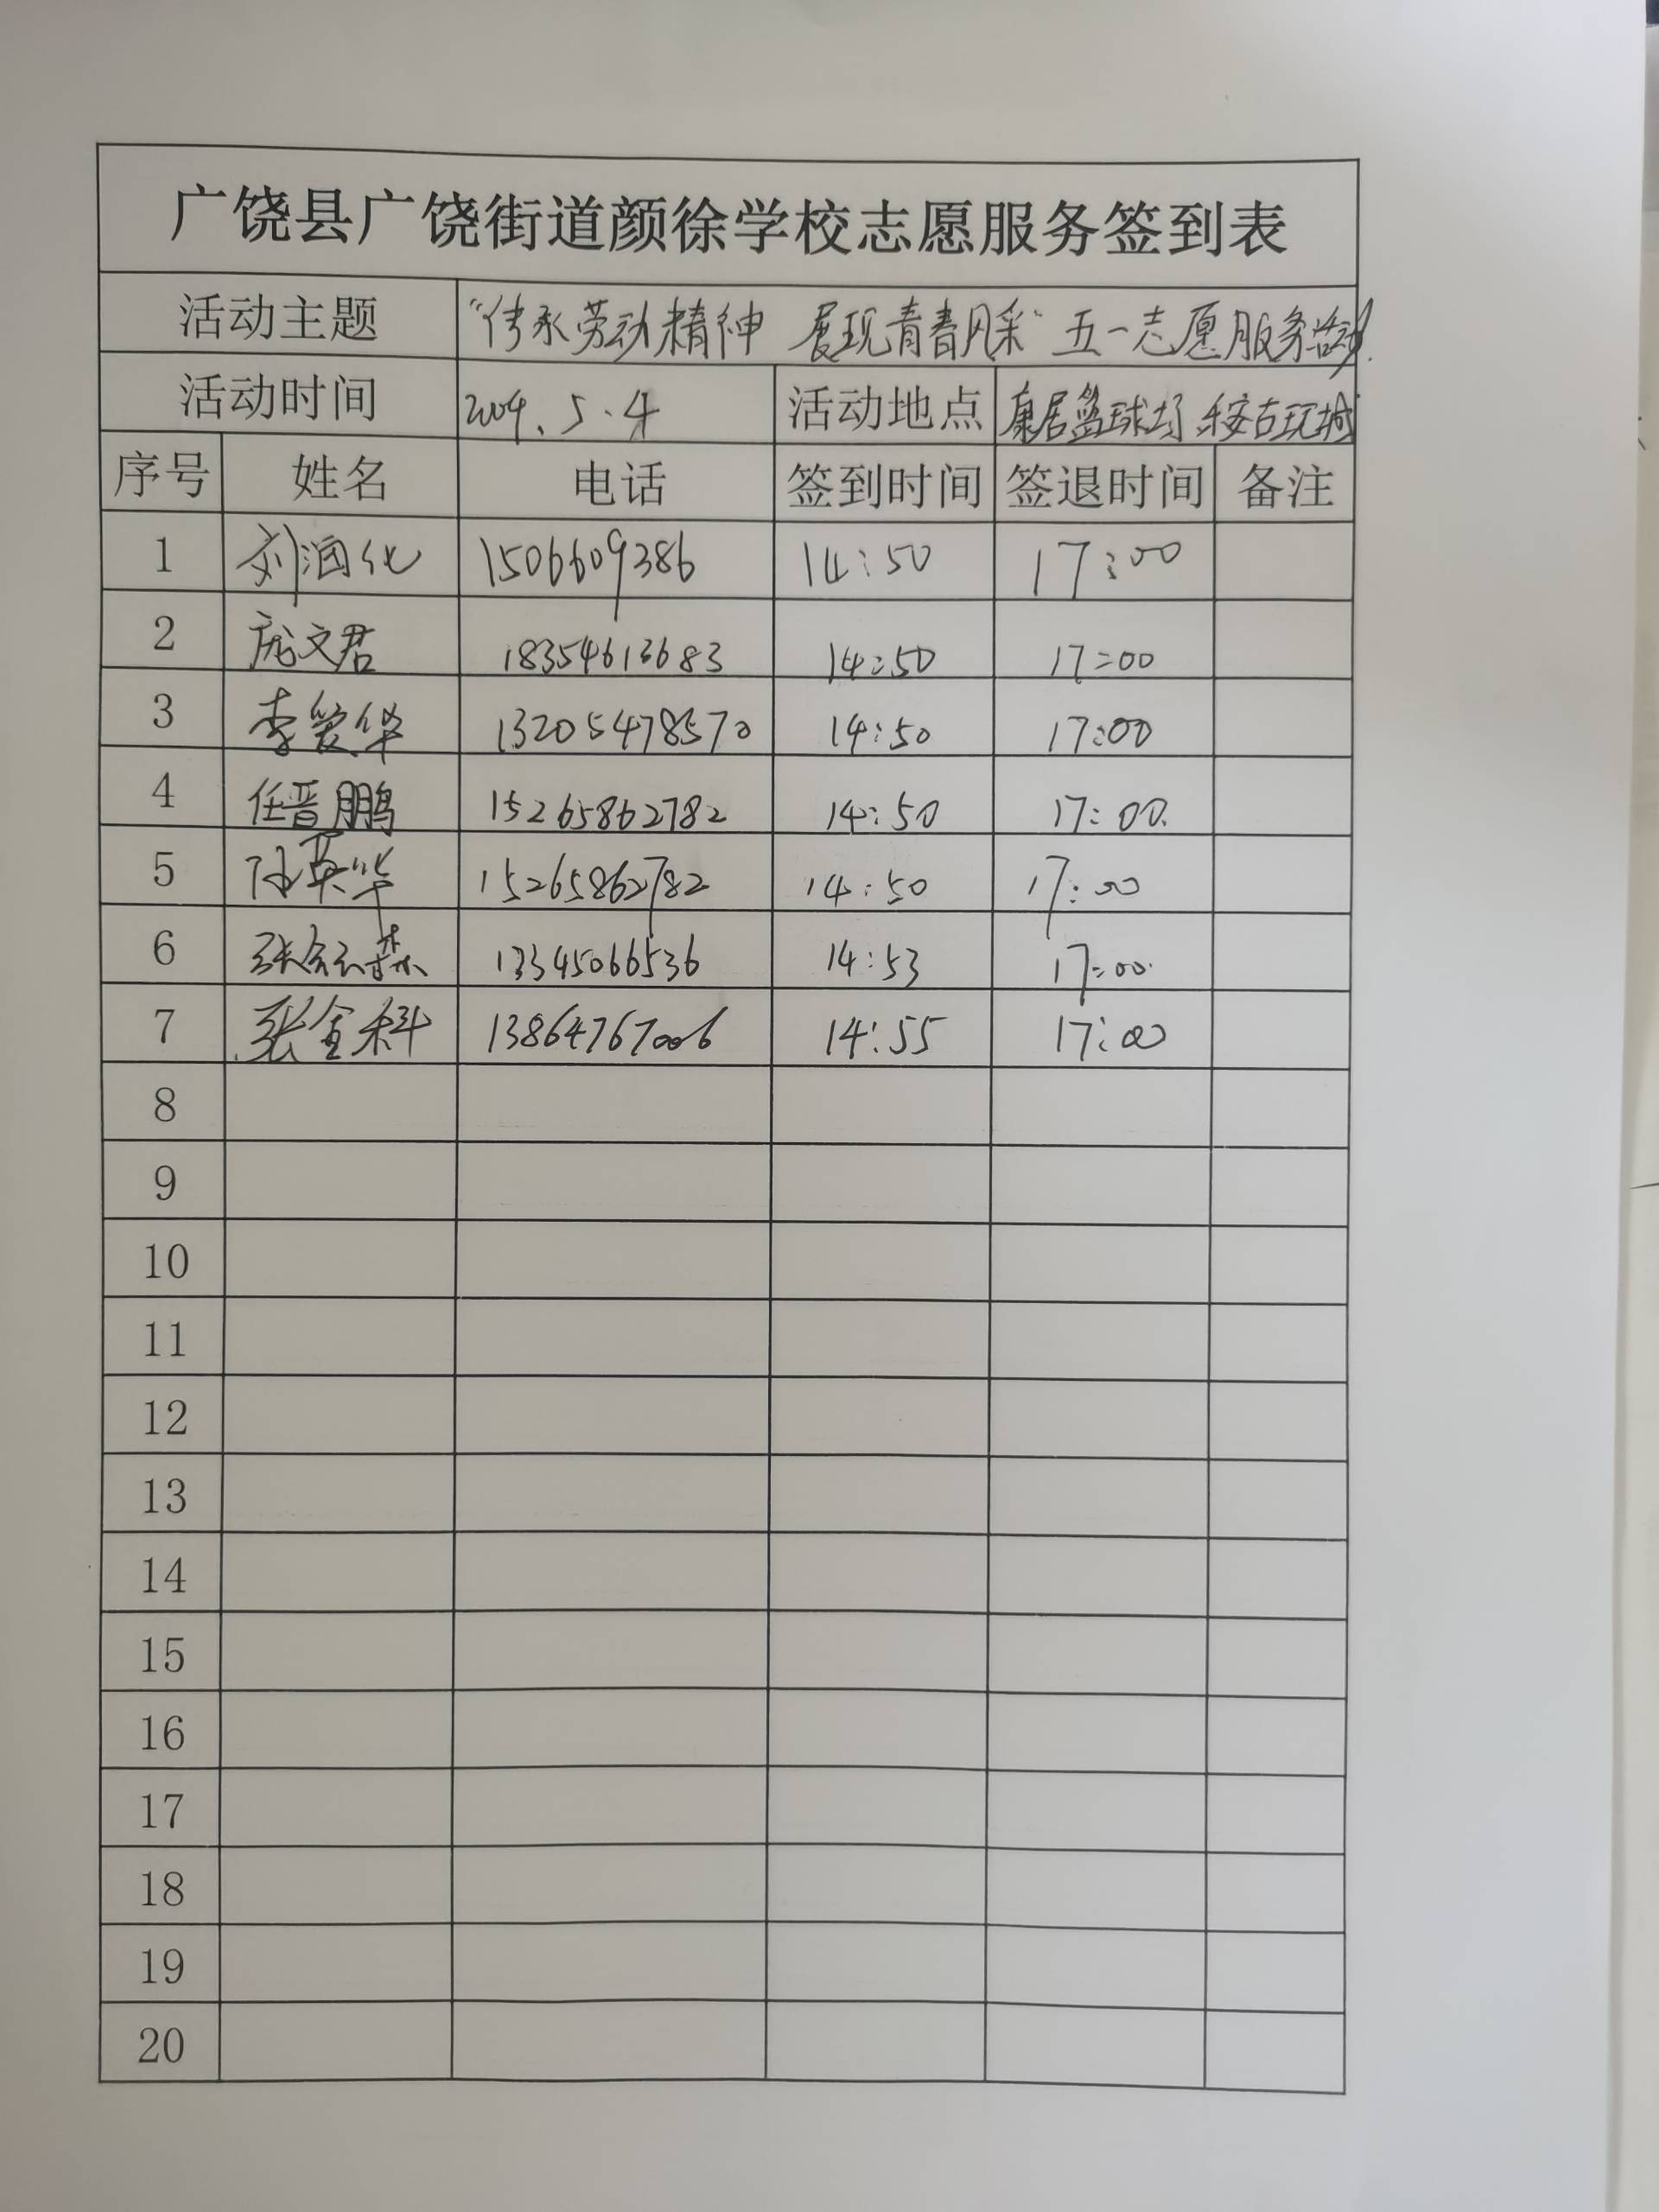 广饶县广饶街道颜徐学校志愿服务签到表
活动主题 "传承劳动精神 展现青春风采" 五一志愿服务活动
活动时间 5.4 活动地点 康居篮球场 乐安古玩城
序号 姓名 电话 签到时间 签退时间 备注
1 刘润化 1506609386 14:50 17:00
2 庞文君 18354613683 14:50 17:00
3 李爱华 13205478570 14:50 17:00
4 任晋鹏 15265862782 14:50 17:00
5 英华 15265862782 14:50 17:00
6 张 森 13345066536 14:53 17:00
7 张金科 13864767006 14:55 17:00
8
9
10
11
12
13
14
15
16
17
18
19
20